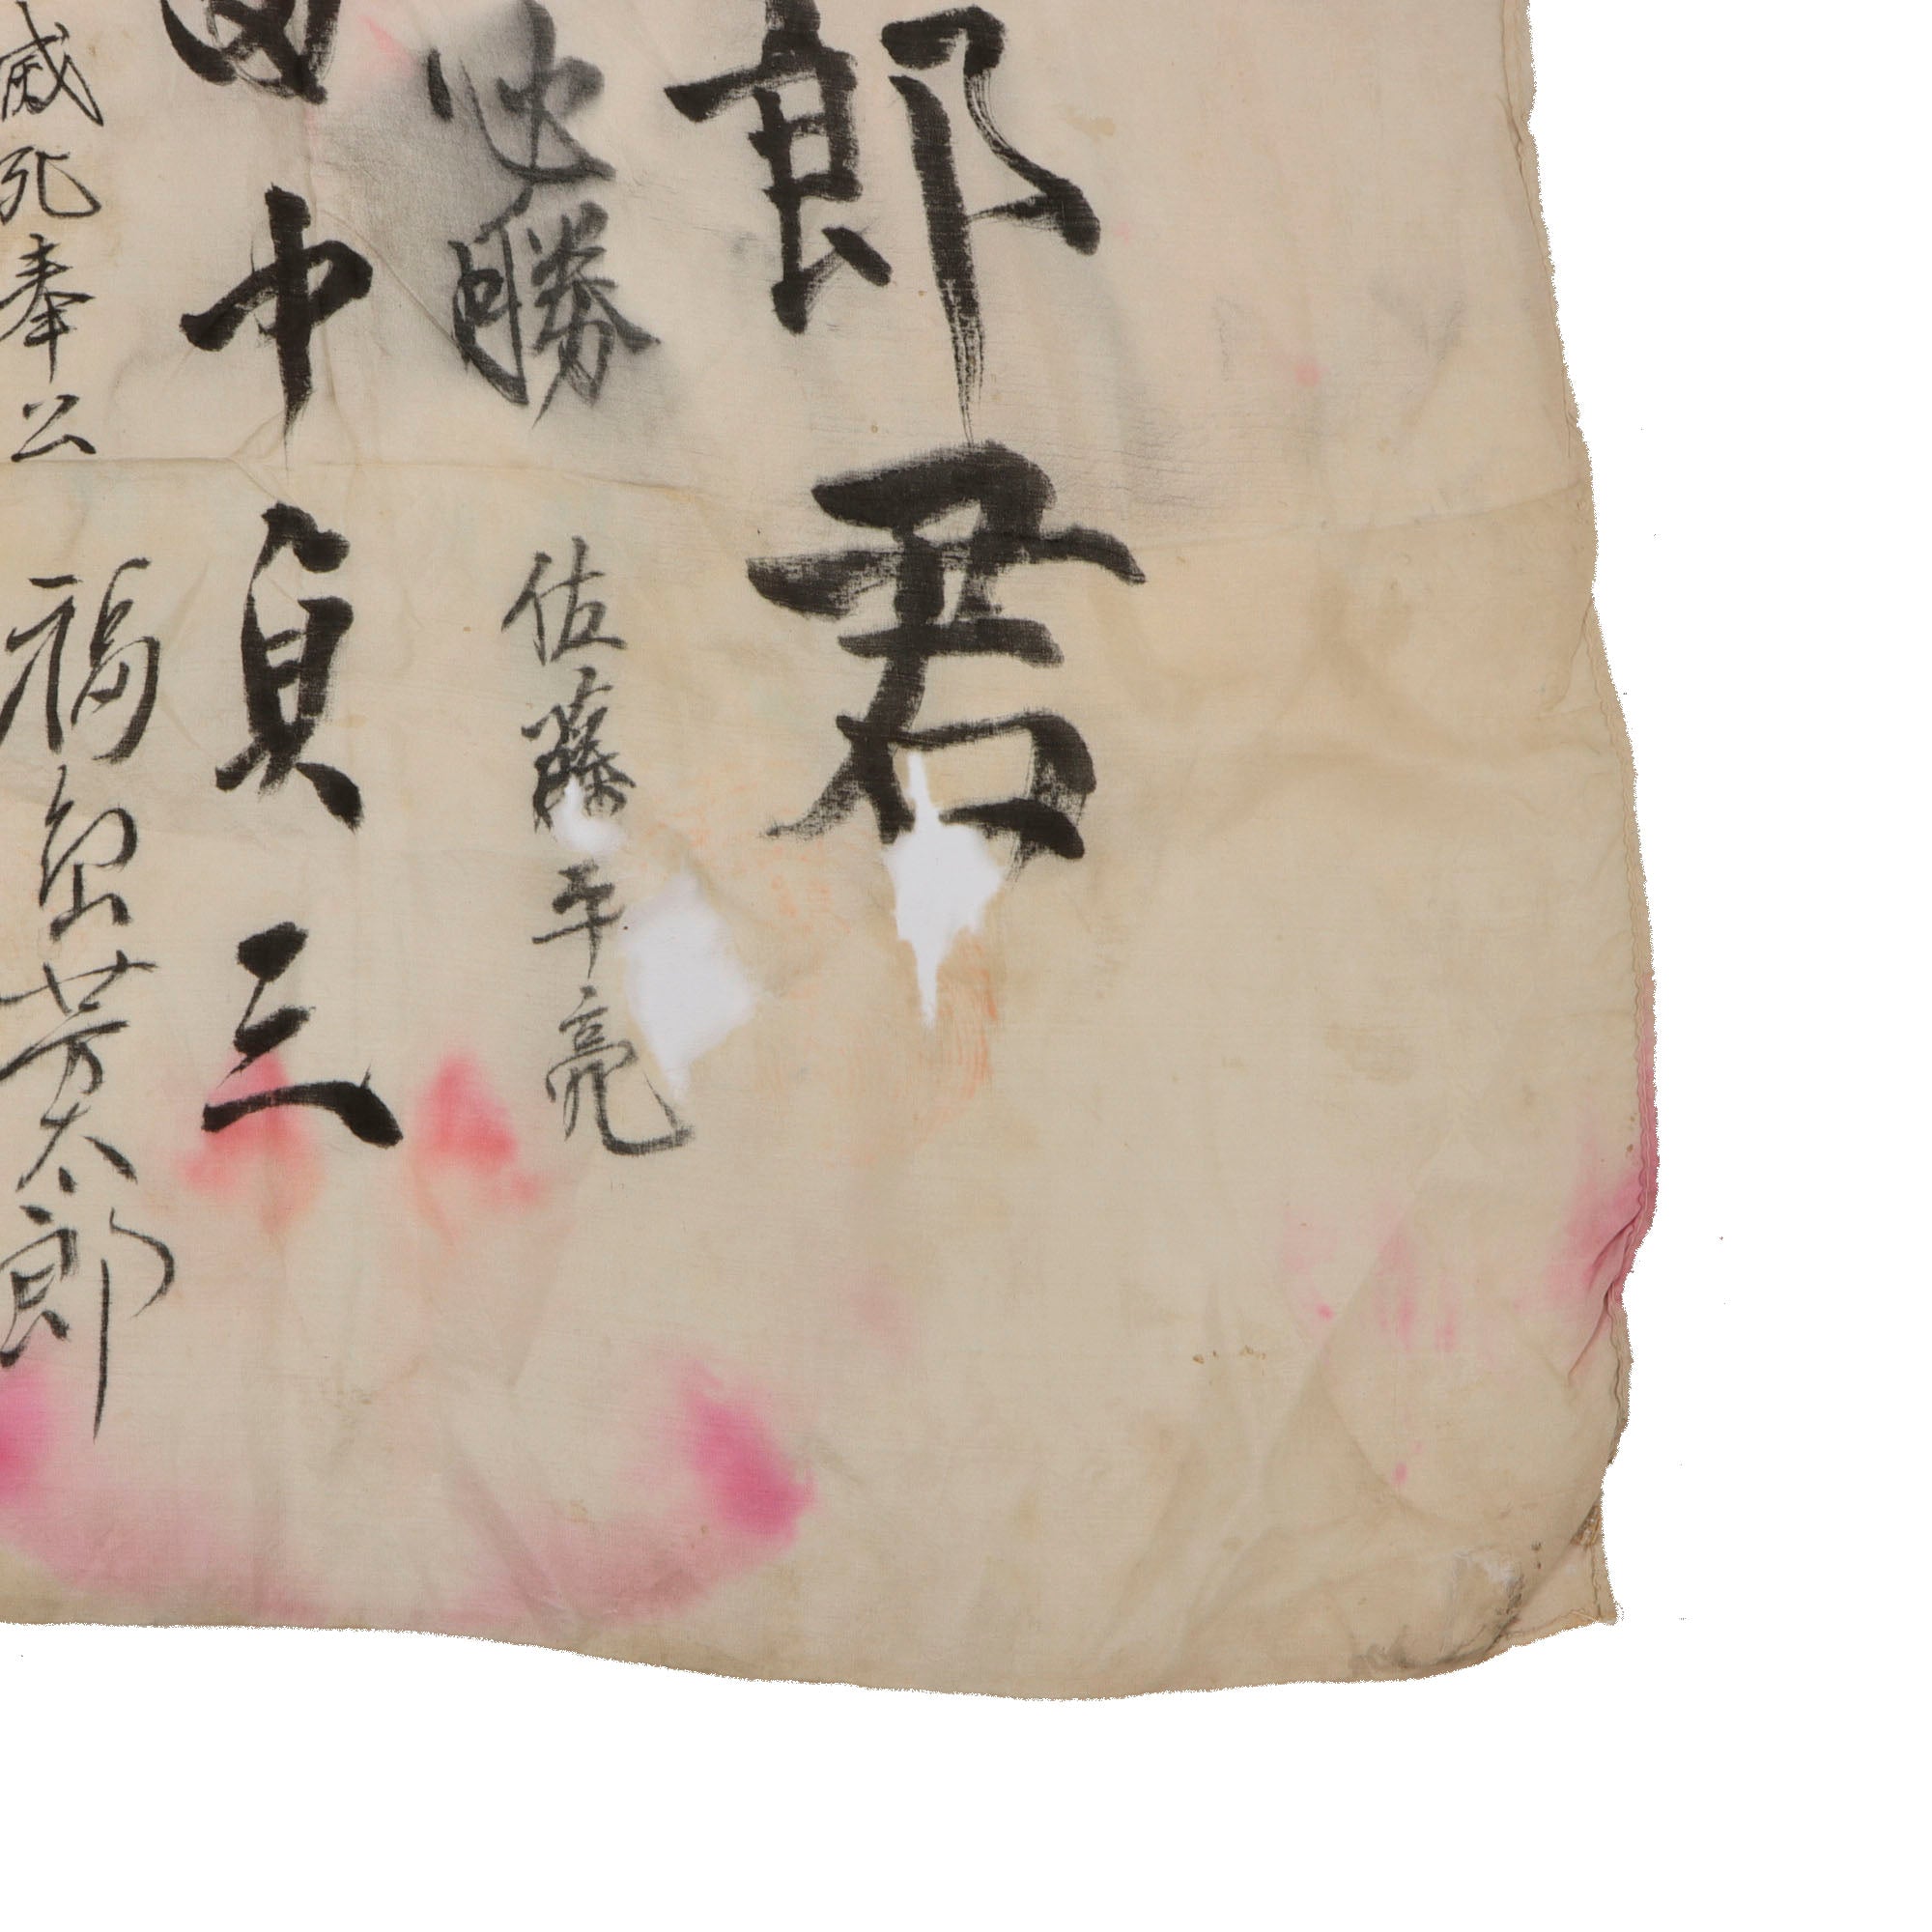 郎君
必勝 佐藤平亮
田中貞三
死奉公 福島芳太郎